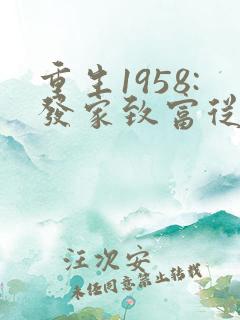 重生1958:
發家致富從
汪次安
未任同意禁止转载